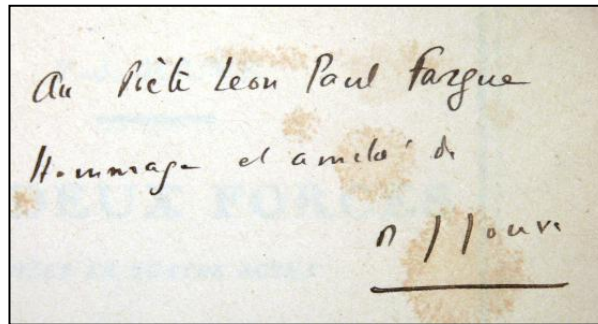 Au Poète Leon Paul Fargue
Hommage et amitié de
P J Jouve
DEUX FORCES